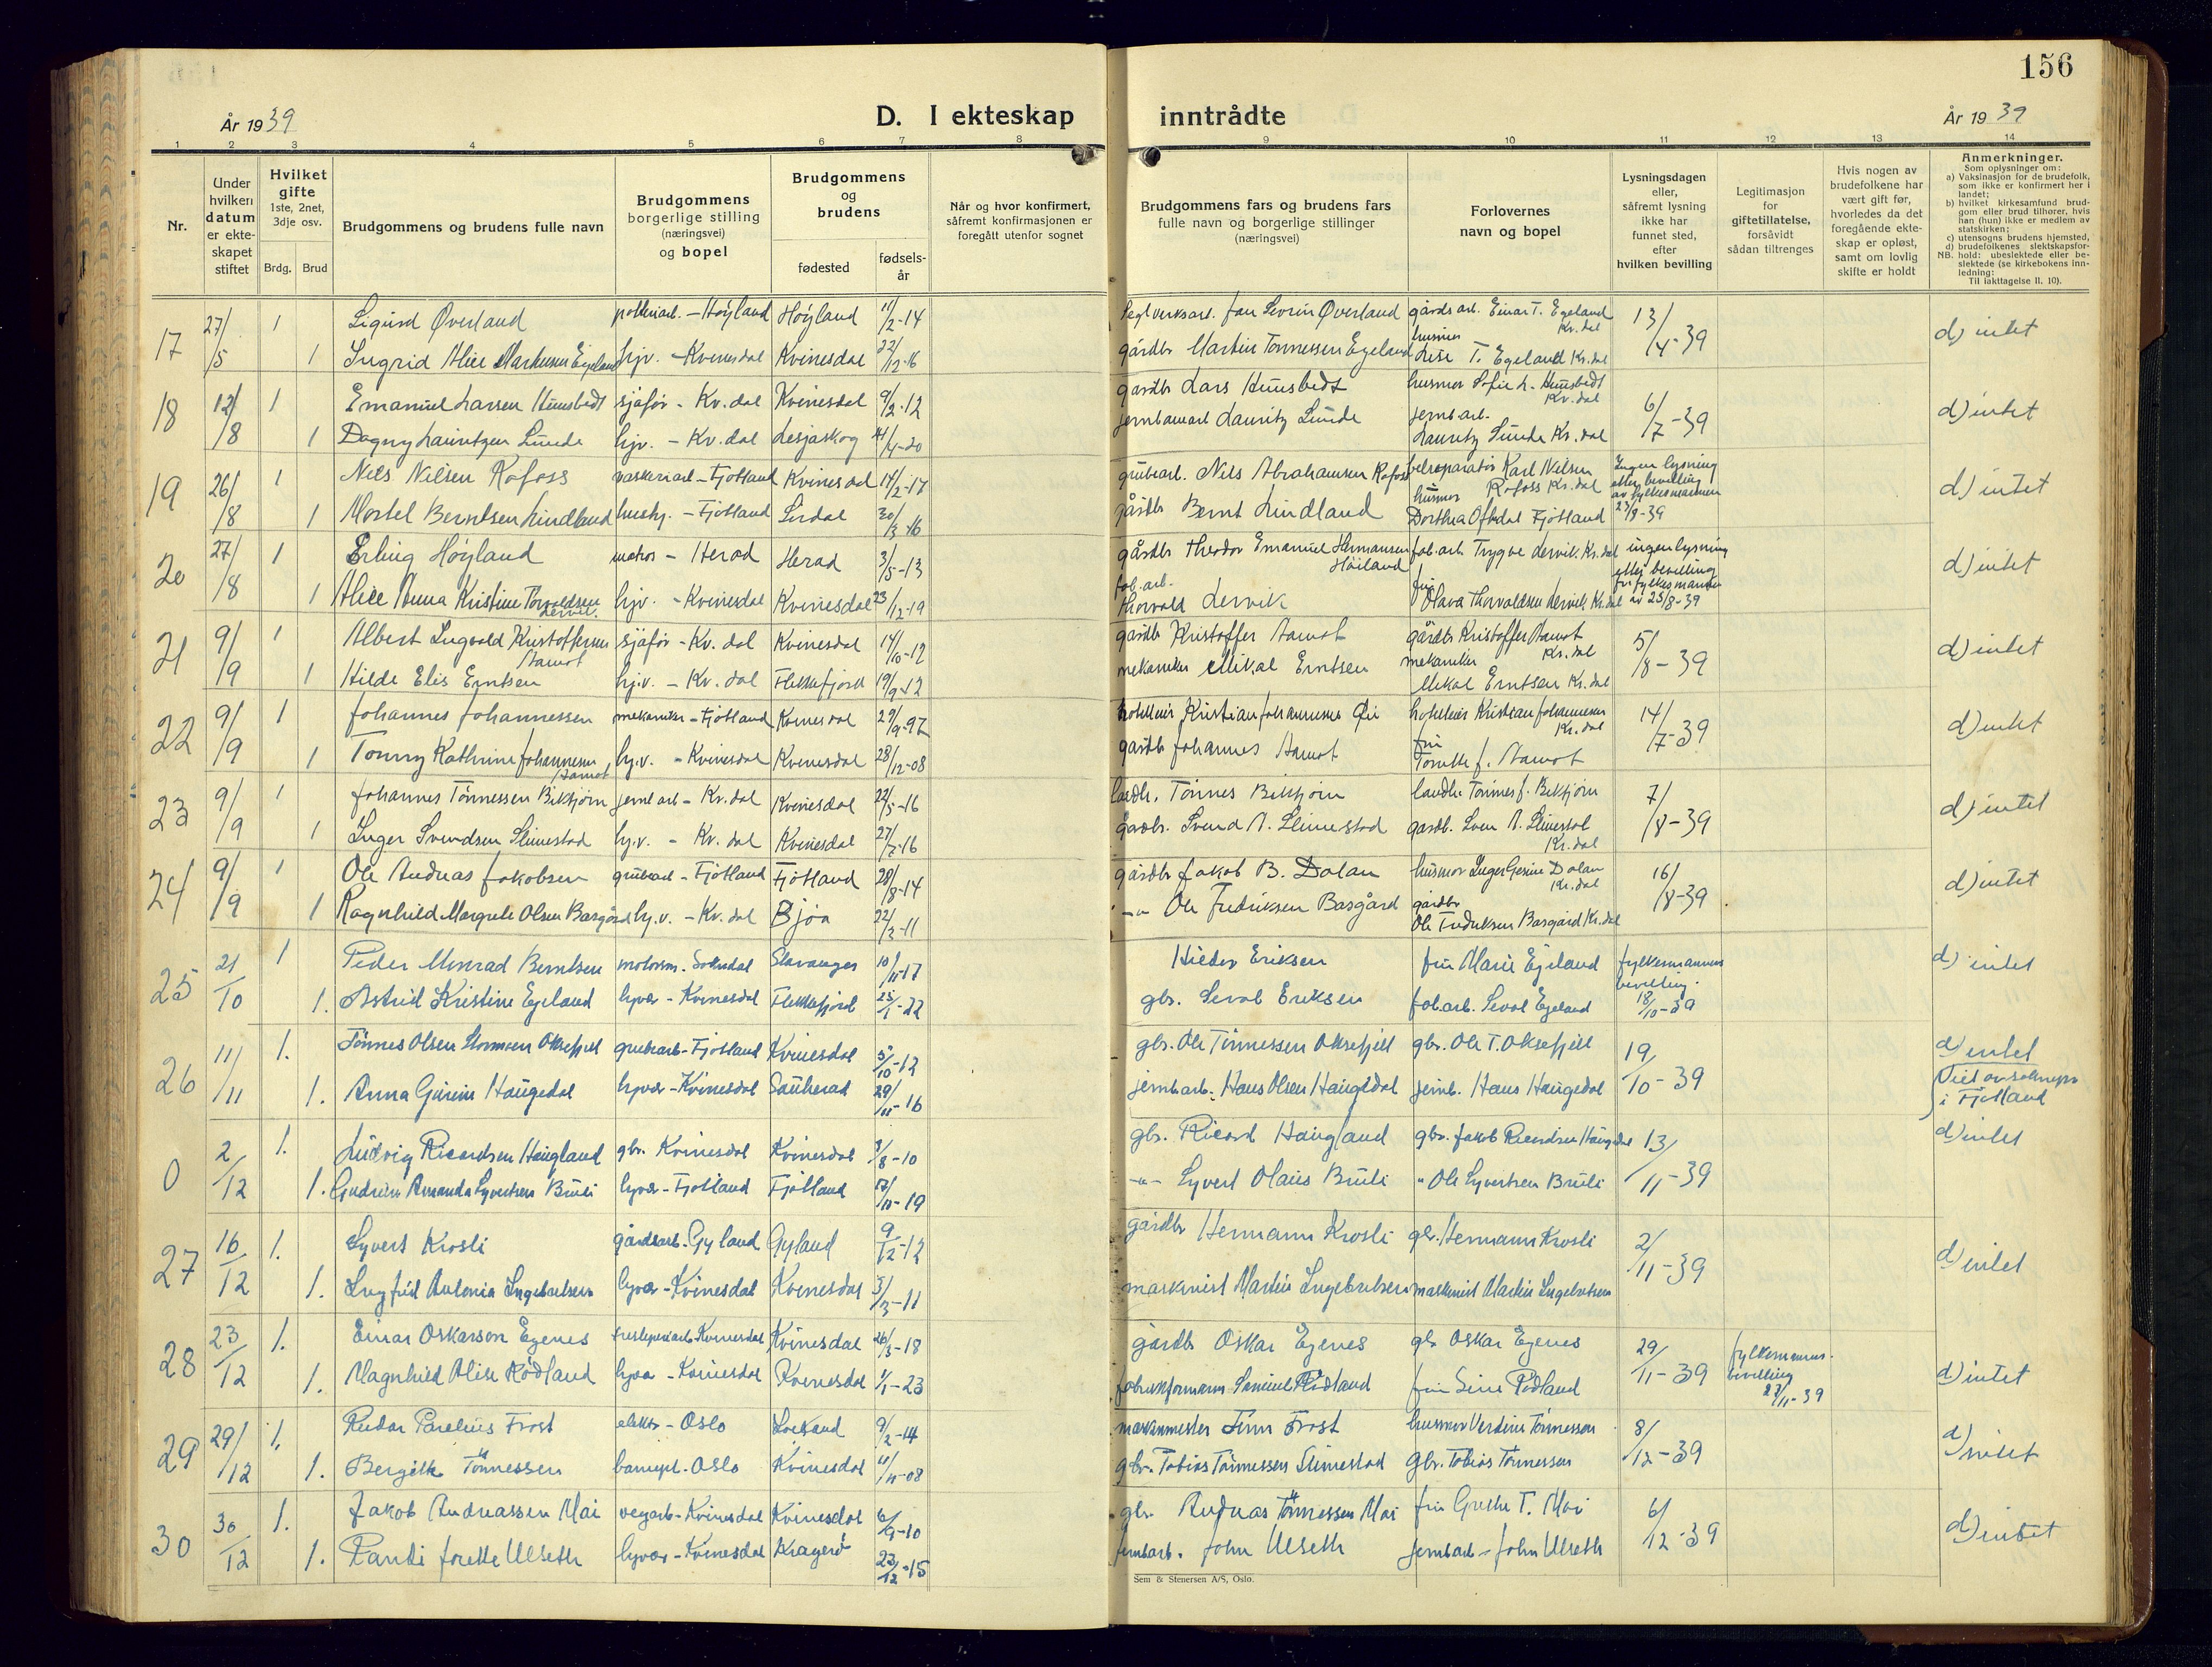 156
År 1939
D. I ekteskap inntrådte
År 1939
1 2 3 4 5 6 7 8 9 10 11 12 13 14
Nr.
Under hvilken datum er ekteskapet stiftet
Hvilket gifte 1ste, 2net, 3dje osv.
Brdg. Brud
Brudgommens og brudens fulle navn
Brudgommens borgerlige stilling (næringsvei) og bopel
Brudgommens og brudens
fødested
fødsels-år
Når og hvor konfirmert, såfremt konfirmasjonen er foregått utenfor sognet
Brudgommens fars og brudens fars fulle navn og borgerlige stillinger (næringsvei)
Forlovernes navn og bopel
Lysningsdagen eller, såfremt lysning ikke har funnet sted, efter hvilken bevilling
Legitimasjon for giftetillatelse, forsåvidt sådan tiltrenges
Hvis nogen av brudefolkene har vært gift før, hvorledes da det foregående ekteskap er opløst, samt om lovlig skifte er holdt
Anmerkninger.
Som oplysninger om:
a) Vaksinasjon for de brudefolk, som ikke er konfirmert her i landet;
b) hvilket kirkesamfund brudgom eller brud tilhører, hvis han (hun) ikke er medlem av statskirken;
c) utensogns brudens hjemsted,
d) brudefolkenes slektskapsforhold: ubeslektede eller beslektede (se kirkebokens innledning:
NB. Til iakttagelse II. 10).
17 27/5 1 Sigurd Øverland - Høyland Høyland 11/2-14 Severin Øverland gårdsarb. Einar T. Egeland Kr.dal 13/4-39 d) intet
1 Ingrid Alice Markussen Egeland hjv. - Kvinesdal Kvinesdal 22/12-16 gårdbr Martin Tønnessen Egeland husmor Lise T. Egeland Kv.dal
18 12/8 1 Emanuel Larsen Hunsbedt sjåfør - Kv.dal Kvinesdal 9/2-12 gårdbr Lars Hunsbedt husmor Sofie L. Hunsbedt Kv.dal 6/7-39 d) intet
1 Dagny Lauritzen Lunde hjv. - Kv.dal Lesjaskog 4-20 Lauritz Lunde jernb.arb. Lauritz Lunde Kv.dal
19 26/8 1 Nils Nilsen Rafoss - Fjotland Kvinesdal 14/2-17 grubearb. Nils Abrahamsen Rafoss Karl Nilsen Rafoss Kv.dal Ingen lysning efter bevilling av fylkesmannen 23/8-39 d) intet
1 Berntsen Lindland hushj. - Fjotland Sirdal 30/3-16 gårdbr Bernt Lindland husmor Dorthea Oftedal Fjotland
20 27/8 1 Erling Høyland matros - Herad Herad 3/5-13 gårdbr Theodor Emanuel Hermansen Høiland fab.arb. Trygve Lervik Kv.dal ingen lysning efter bevilling fra fylkesmannen av 25/8-39 d) intet
1 Alice Anna Kristine Torvaldsen Lervik hjv. - Kvinesdal Kvinesdal 23/12-19 fab.arb. Thorvald Lervik fru Olava Thorvaldsen Lervik Kv.dal
21 9/9 1 Albert Ingvald Kristoffersen Aamot sjåfør - Kv.dal Kvinesdal 14/10-12 gårdbr Kristoffer Aamot gårdbr Kristoffer Aamot Kv.dal 5/8-39 d) intet
1 Hilde Elis Erntsen hj.v. - Kv.dal Flekkefjord 19/9-12 mekaniker Mikal Erntsen mekaniker Mikal Erntsen Kv.dal
22 9/9 1 Johannes Johannessen mekaniker - Fjotland Kvinesdal 29/9-97 Kristian Johannessen Kristian Johannessen Kv.dal 14/7-39 d) intet
1 Tonny Kathrine Johannessen Aamot hj.v. - Kvinesdal Kvinesdal 28/12-08 gårdbr Johannes Aamot fru Tomette J. Aamot
23 9/9 1 Johannes Tönnessen Bekkjörn jernb.arb - Kv.dal Kvinesdal 22/5-16 Tönnes Bekkjörn landh. Tönnes J. Bekkjörn 7/8-39 d) intet
1 Inger Svendsen Slimestad hj.v. - Kv.dal Kvinesdal 27/7-16 gårdbr. Svend A. Slimestad gårdb. Sven A. Slimestad Kv.dal
24 9/9 1 Ole Andreas Jakobsen grubearb - Fjotland Fjotland 28/8-14 gårdbr Jakob B. Dalan husmor Inger Gesine Dalan Kv.dal 16/8-39 d) intet
1 Ragnhild Margrete Olsen Barsgård hj.v. - Kv.dal Bjoa 22/2-11 -"- Ole Fredriksen Basgård gårdbr Ole Fredriksen Basgård Kv.dal
25 21/10 1 Peder Monrad Berntsen motorm. Sokndal Stavanger 10/11-17 Eriksen fru Marie Egeland fylkesmannens bevilling 18/10-39 d) intet
1. Astrid Kristine Egeland hjvær - Kvinesdal Flekkefjord 25/1-22 gbr. Sevat Eriksen fab.arb. Sevat Egeland
26 11/11 1. Tönnes Olsen Oksefjell grubearb - Fjotland Kvinesdal 5/10-12 gbr. Ole Tönnessen Oksefjell gbr. Ole T. Oksefjell 19/10-39 d) intet
1. Anna Gurine Haugedal hjvær - Kvinesdal Sauherad 29/11-16 jernbarb. Hans Olsen Haugedal jernb. Hans Haugedal (Viet av soknepr. i Fjotland
0 2/12 1. Ludvig Ricardsen Haugland gbr. Kvinesdal Kvinesdal 3/8-10 gbr. Ricard Haugland gbr. Jakob Ricardsen 13/11-39 d) intet
1. Gudrun Amanda Syvertsen Bruli hjvær - Fjotland Fjotland 17/10-19 -"- Syvert Olaus Bruli " Ole Syvertsen Bruli
27 16/12 1. Syvert Krosli gårdsarb. Gyland Gyland 9/12-12 gårdbr Hermann Krosli gbr. Hermann Krosli 2/11-39 d) intet
1. Ingfrid Antonia Ingebretsen hjvær - Kvinesdal Kvinesdal 3/3-11 maskinist Martin Ingebretsen maskinist Martin Ingebretsen
28 23/12 1. Einar Oskarson Egenes - Kvinesdal Kvinesdal 26/3-18 gårdb Oskar Egenes gbr Oskar Egenes 29/11-39 fylkesmanns-bevilling 27/11-39 d) intet
1. Magnhild Alise Rödland hjvær - Kvinesdal Kvinesdal 1/1-23 Samuel Rödland fru Sine Rödland
29 29/12 1. Reidar Parelius Frost elektr - Oslo 9/2-14 maskinmester Finn Frost husmor Verdine Tönnessen 8/12-39 d) intet
1. Bergitte Tönnessen - Oslo Kvinesdal 11/11-08 gbr. Tobias Tönnessen Slimestad gbr. Tobias Tönnessen
30 30/12 1. Jakob Andreassen Moi vegarb - Kvinesdal Kvinesdal 6/9-10 gbr. Andreas Tönnessen Moi fru Grethe T. Moi 6/12-39 d) intet
1. Ulseth hjvær - Kvinesdal Kragerö 23/12-15 jernbarb. John Ulseth jernbarb - John Ulseth
Sem & Stenersen A/S, Oslo.